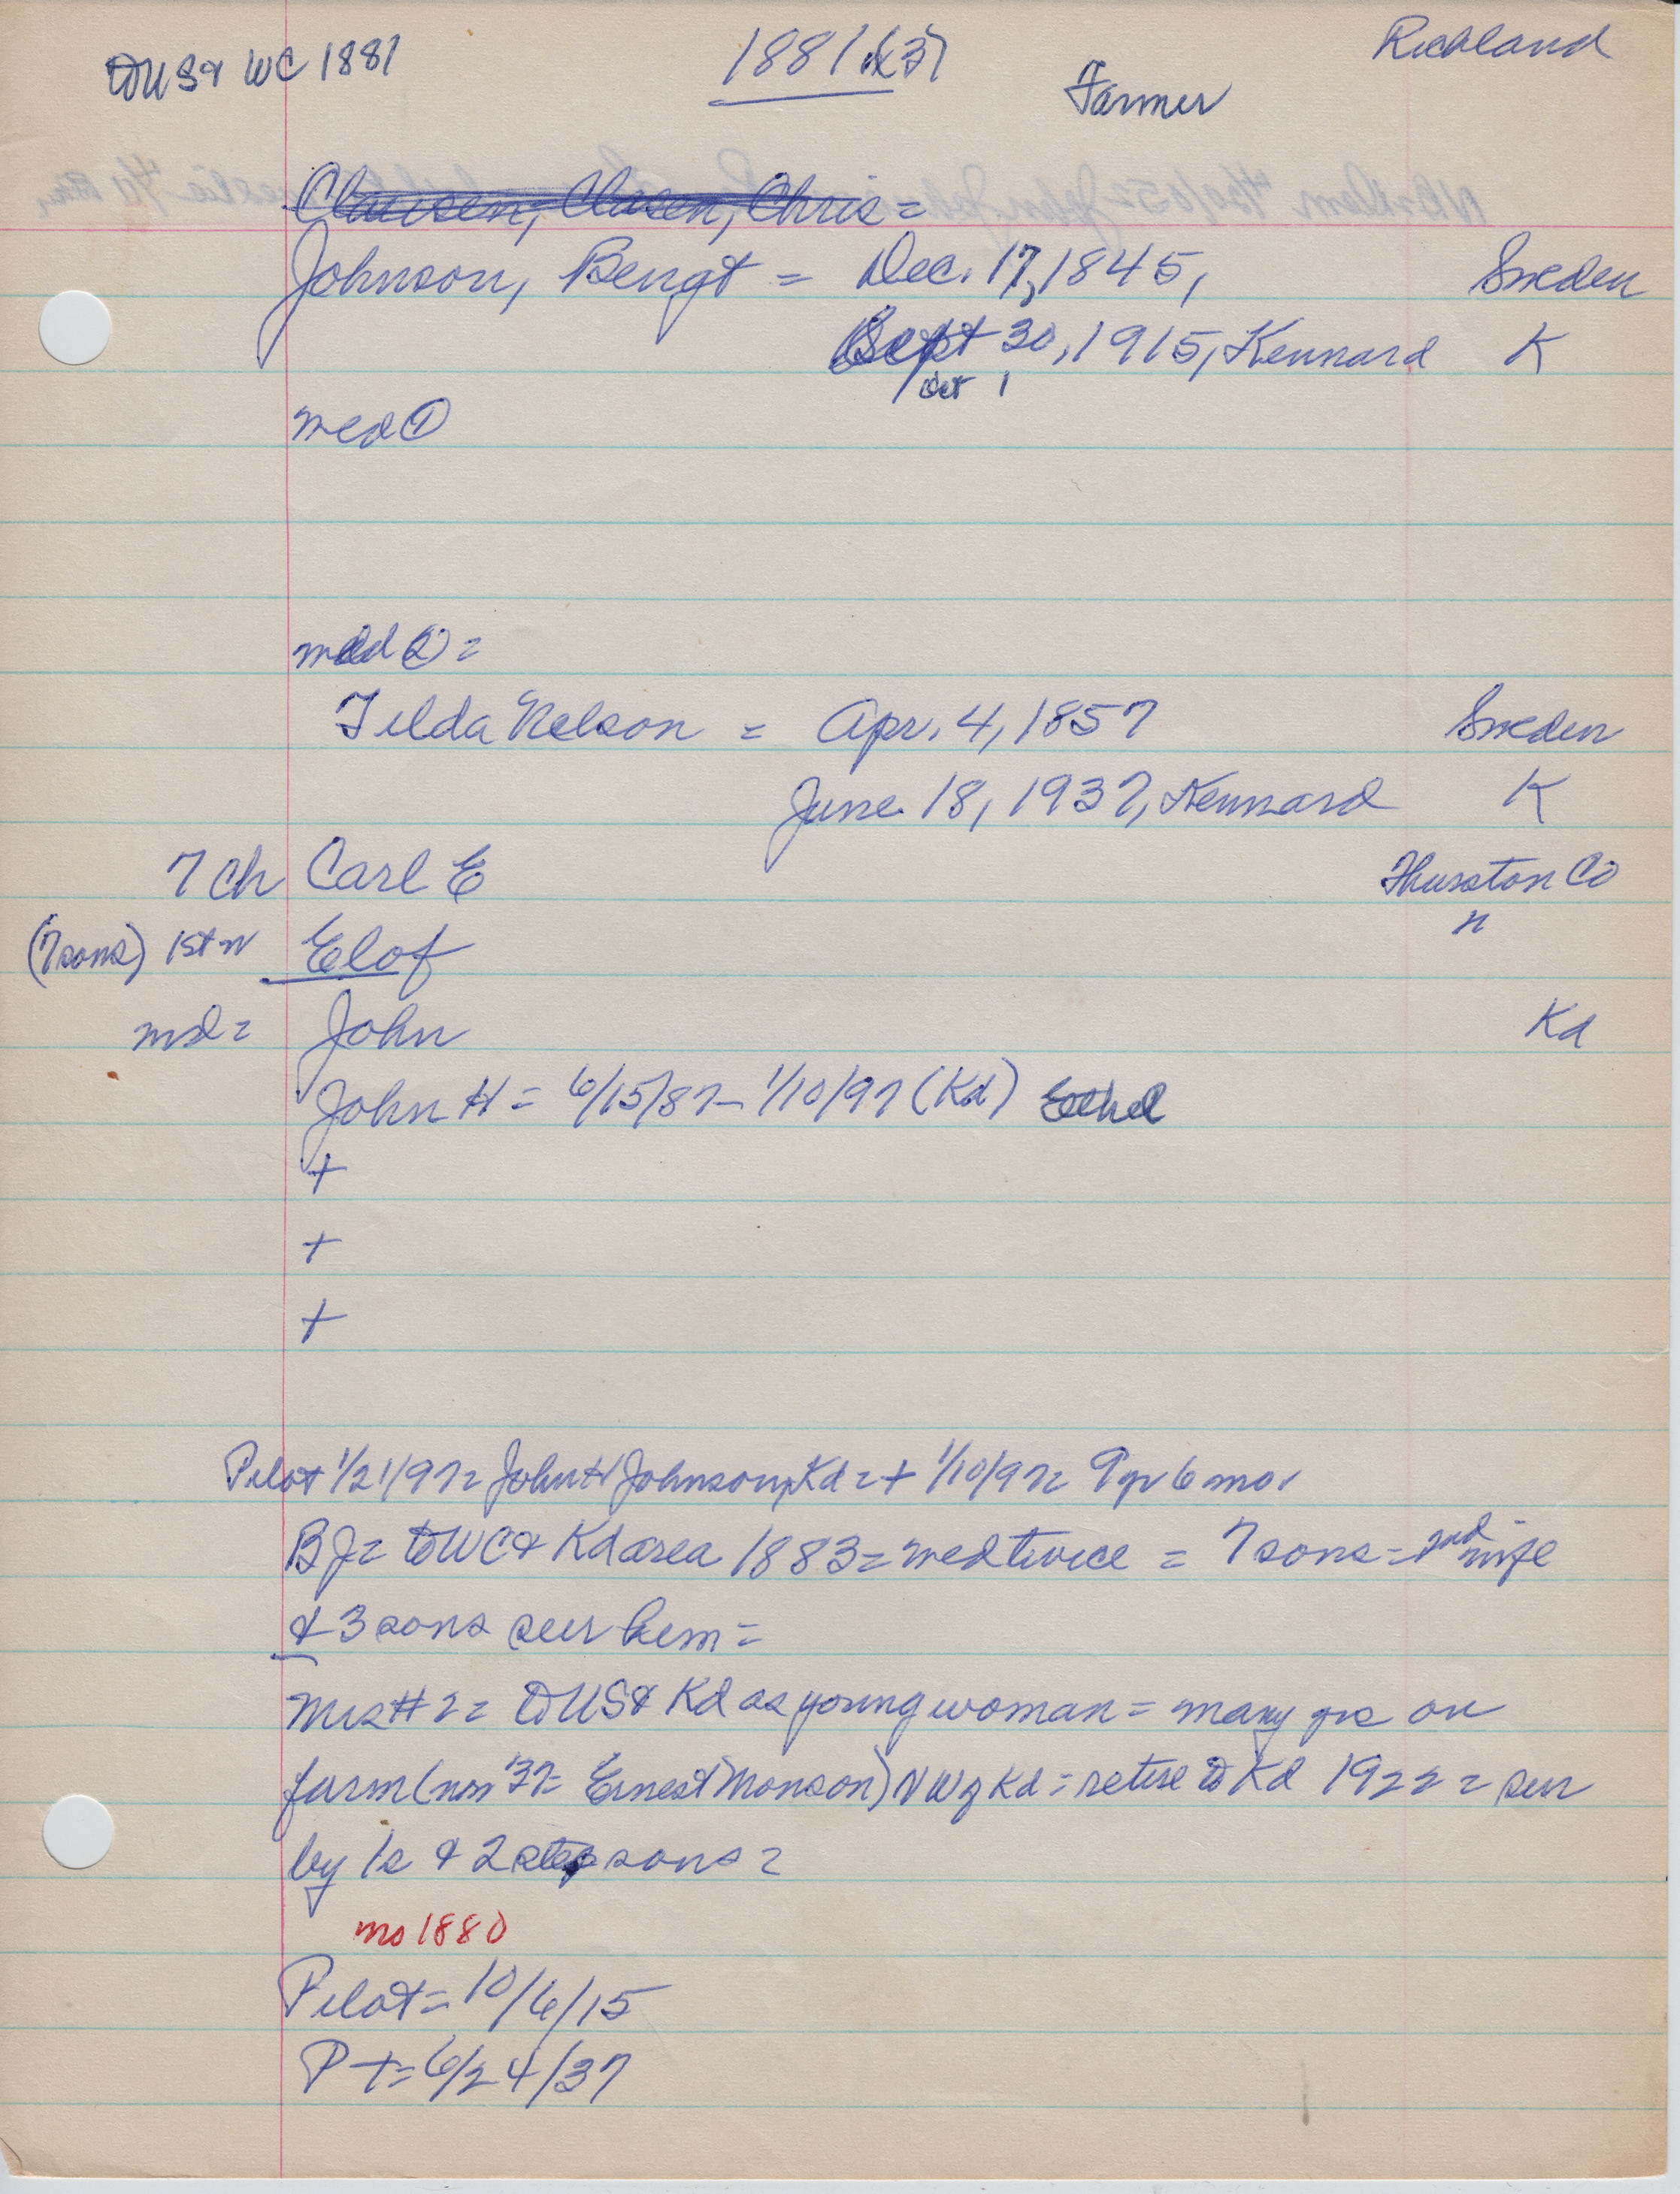 to US & WC 1881
1881 (3)
Richland
Farmer
Clausen, Clasen, Chris =
Johnson, Bengt = Dec. 17, 1845, Sweden
Sept 30, 1915, Kennard K
Oct 1
med ①
med ② =
Tilda Nelson = Apr. 4, 1857 Sweden
June 18, 1937, Kennard K
7 ch Carl E Thurston Co
(7 sons) 1st w Elof "
md = John Kd
John H = 6/15/87 - 1/10/97 (Kd) Ethel
+
+
+
Pilot 1/21/97 = John H Johnson, Kd = + 1/10/97 = 9 yr 6 mo,
BJ = to WC & Kd area 1883 = med twice = 7 sons = 2nd wife
& 3 sons sur him =
Mrs # 2 = to US & Kd as young woman = many yrs on
farm (now '37 = Ernest Monson) NW of Kd = retire to Kd 1922 = sur
by 1s & 2 step sons =
mo 1880
Pilot = 10/6/15
P T = 6/24/37